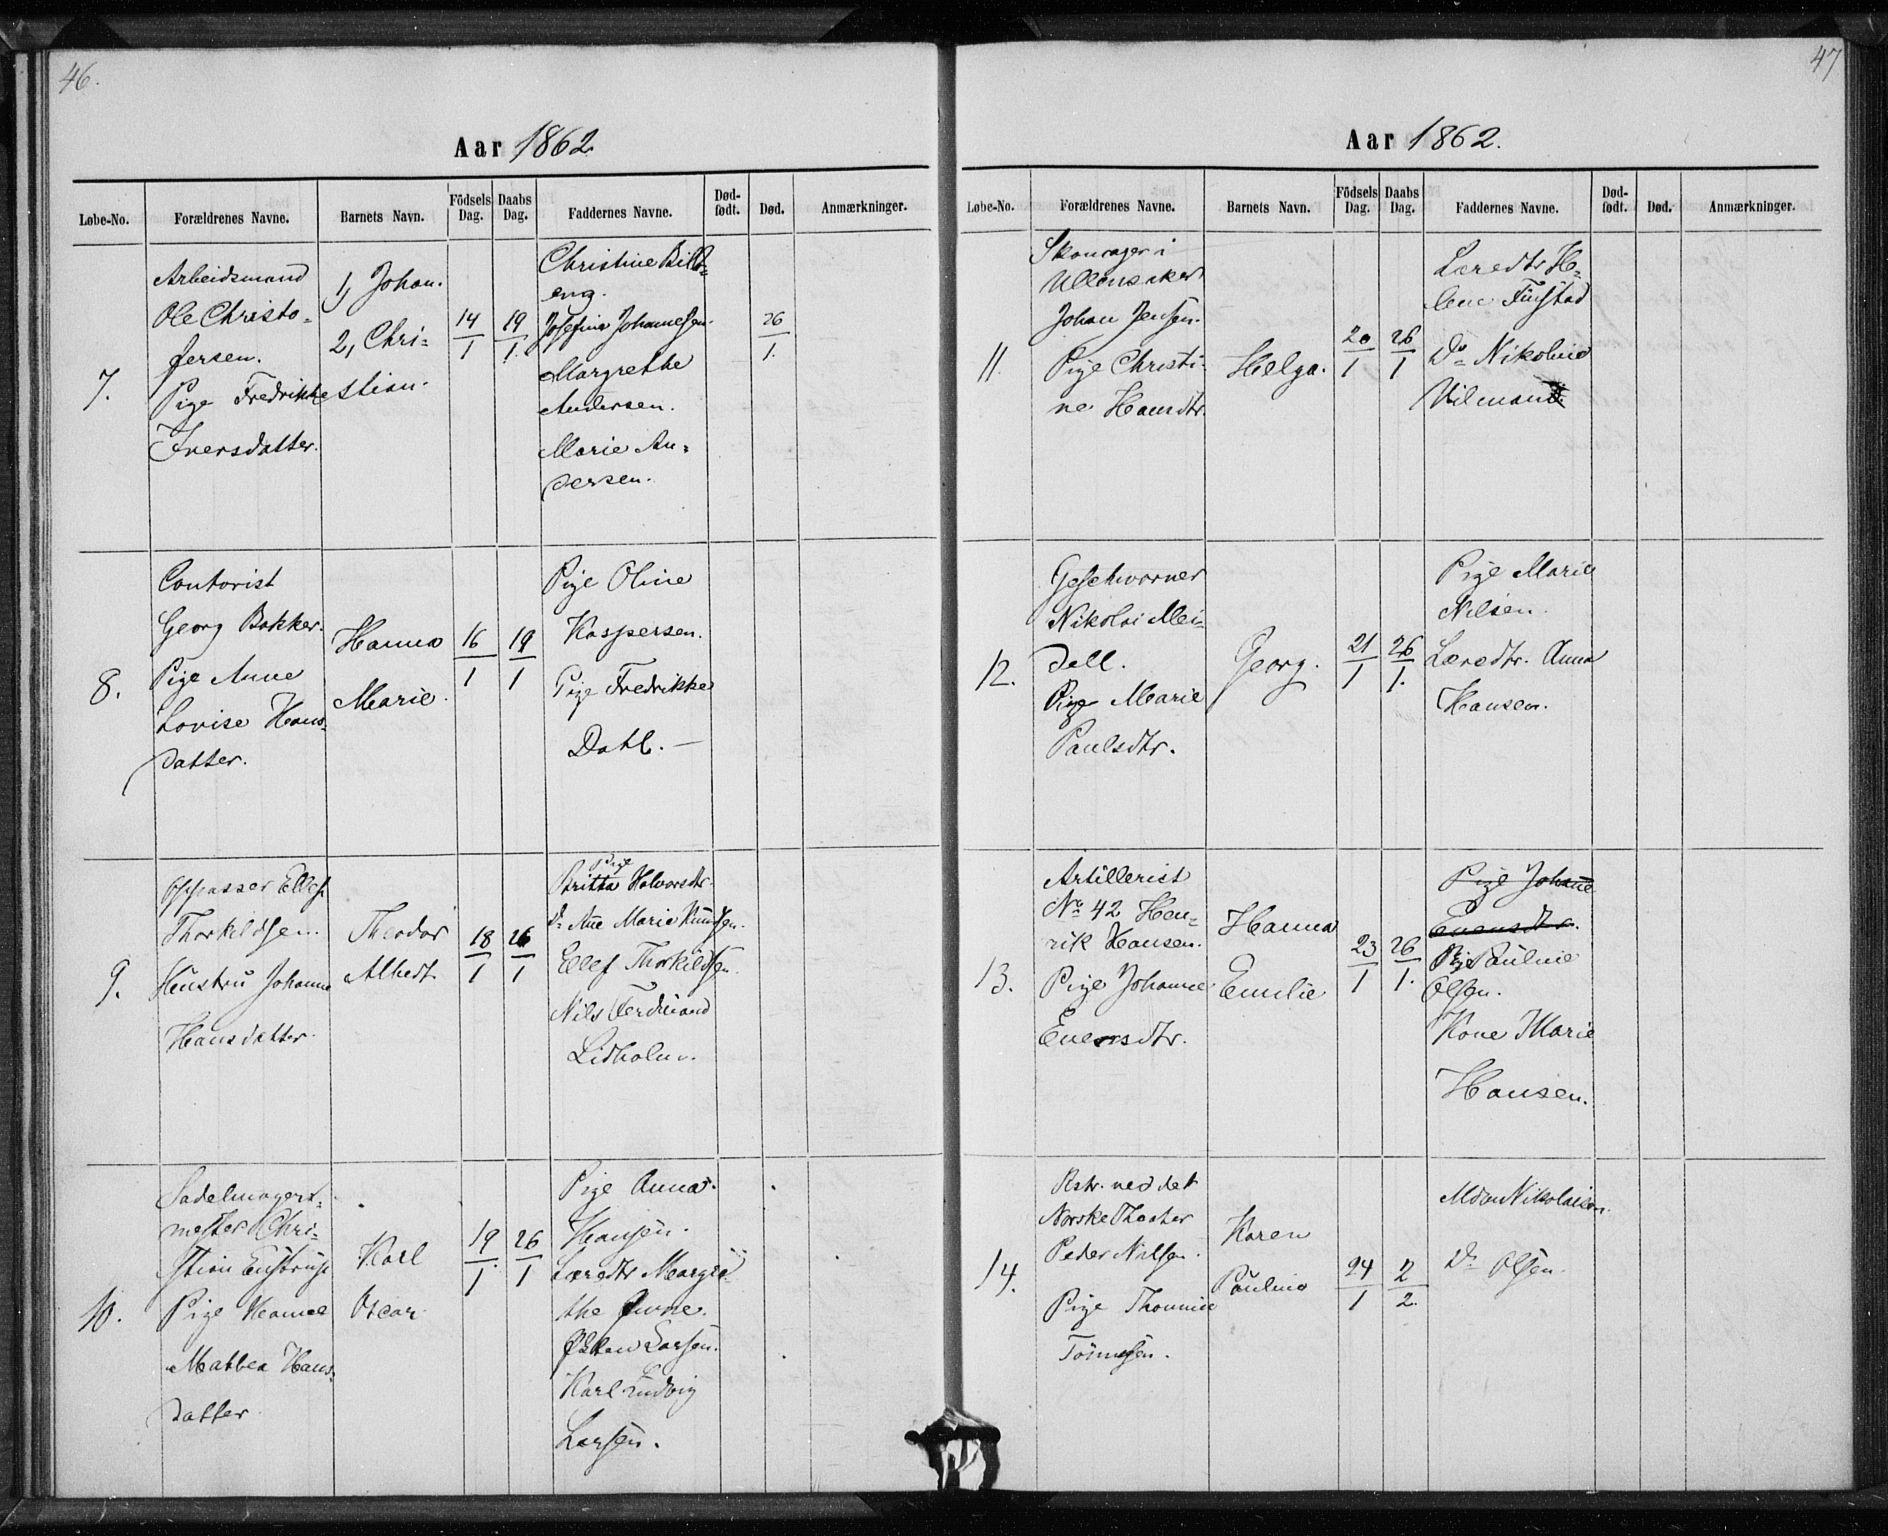 46.
Aar 1862
Løbe-No. Forældrenes Navne. Barnets Navn. Födsels Dag. Daabs Dag. Faddernes Navne. Død-født. Død. Anmærkninger.
7.
Arbeidsmand
Ole Christo-
fersen.
Pige Fredrikke
Iversdatter.
1, Johan.
2, Chri-
stian.
14/1
19/1.
Christine
eng.
Josefine Johannesen.
Margrethe
Andersen.
Marie An-
dersen.
26/1.
8.
Contorist
Georg Bakker.
Pige Anne
Lovise Hans-
datter.
Hanna
Marie.
16/1
19/1
Pige Oline
Kaspersen.
Pige Fredrikke
Dahl. –
9.
Oppasser Ellef
Thorkildsen.
Hustru Johanne
Hansdatter.
Theodor
Albert
18/1
26/1
Pige
Britta Halvorsdtr.
Do Ane Marie Knudsen.
Ellef Thorkildsen.
Nils Ferdinand
Lidholm.
10.
Sadelmagerx-
mester Chri-
stian
Pige Hanna
Mathea Hans-
datter.
Karl
Oscar.
19/1.
26/1
Pige Anna
Hansen.
Læredtr Margre-
the
Larsen.
Karl Ludvig
Larsen.
47
Aar 1862.
Løbe-No. Forældrenes Navne. Barnets Navn. Födsels Dag. Daabs Dag. Faddernes Navne. Død-født. Død. Anmærkninger.
11.
Skomager i
Ullensaker
Johan Jensen.
Pige Christi-
ne Hansdtr.
Helga.
20/1
26/1
Læredtr He-
lene Finstad
Do Nikoline
Vilmand
12.
Geschworner
Nikolai Mei-
dell.
Pige Marie
Paulsdtr.
Georg.
21/1
26/1.
Pige Marie
Nilsen.
Læredtr. Anna
Hansen.
13.
Artillerist
No 42 Hen-
rik Hansen.
Pige Johanne
Evensdtr.
Hanna
Emilie
23/1
26/1.
Pige Johane
Evensdtr.
Pige Pauline
Olsen.
Kone Marie
Hansen.
14.
ved det
Norske Theater
Peder Nilsen.
Pige Thomine
Tönnesen.
Karen
Pauline
24/1
2/2.
Mdm Nikolaisen.
Do Olsen.